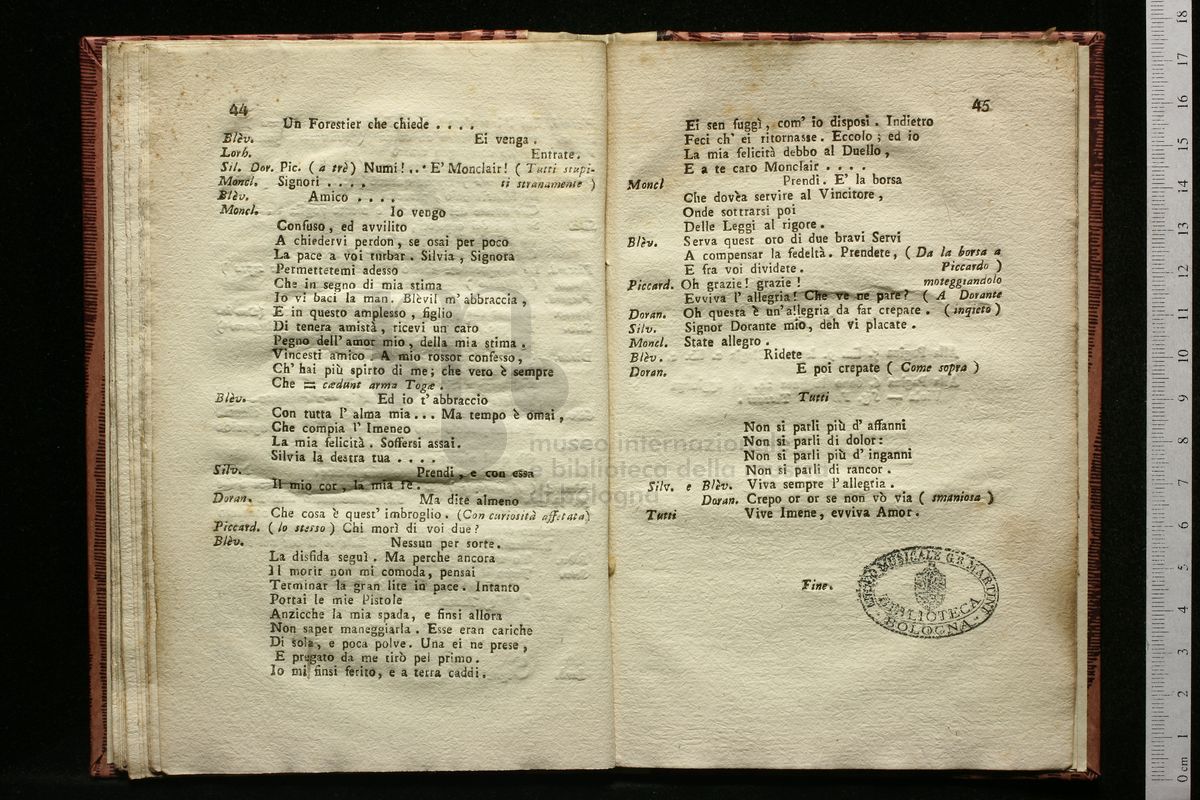 44
Un Forestier che chiede . . . .
Blèv. Ei venga .
Lorh. Entrate.
Sil. Dor. Pic. ( a trè ) Numi! . . . E' Monclair! ( Tutti stupi-
Moncl. Signori . . . . ti stranamente )
Blèv. Amico . . . .
Moncl. Io vengo
Confuso , ed avvilito
A chiedervi perdon , se osai per poco
La pace a voi turbar . Silvia , Signora
Permettetemi adesso
Che in segno di mia stima
Io vi baci la man . Blèvil m' abbraccia ,
E in questo amplesso , figlio
Di tenera amistà , ricevi un caro
Pegno dell' amor mio , della mia stima .
Vincesti amico . A mio rossor confesso ,
Ch' hai più spirto di me ; che vero è sempre
Che = cædunt arma Togæ .
Blèv. Ed io t' abbraccio
Con tutta l' alma mia . . . Ma tempo è omai ,
Che compia l' Imeneo
La mia felicità . Soffersi assai .
Silvia la destra tua . . . .
Silv. Prendi , e con essa
Il mio cor , la mia fe .
Doran. Ma dite almeno
Che cosa è quest' imbroglio . (Con curiosità affettata)
Piccard. ( lo stesso ) Chi morì di voi due ?
Blèv. Nessun per sorte .
La disfida seguì . Ma perche ancora
Il morir non mi comoda , pensai
Terminar la gran lite in pace . Intanto
Portai le mie Pistole
Anzicche la mia spada , e finsi allora
Non saper maneggiarla . Esse eran cariche
Di sola , e poca polve . Una ei ne prese ,
E pregato da me tirò pel primo .
Io mi finsi ferito , e a terra caddi .
45
Ei sen fuggì , com' io disposi . Indietro
Feci ch' ei ritornasse . Eccolo ; ed io
La mia felicità debbo al Duello ,
E a te caro Monclair . . . .
Moncl Prendi . E' la borsa
Che dovèa servire al Vincitore ,
Onde sottrarsi poi
Delle Leggi al rigore .
Blèv. Serva quest oro di due bravi Servi
A compensar la fedeltà . Prendete , ( Da la borsa a
E fra voi dividete . Piccardo )
Piccard. Oh grazie ! grazie ! moteggiandolo
Evviva l' allegria ! Che ve ne pare ? ( A Dorante
Doran. Oh questa è un' allegria da far crepare . ( inqieto )
Silv. Signor Dorante mio , deh vi placate .
Moncl. State allegro .
Blèv. Ridete
Doran. E poi crepate ( Come sopra )
Tutti
Non si parli più d' affanni
Non si parli di dolor :
Non si parli più d' inganni
Non si parli di rancor .
Silv. e Blèv. Viva sempre l' allegria .
Doran. Crepo or or se non vò via ( smaniosa )
Tutti Vive Imene , evviva Amor .
Fine .
LICEO MUSICALE G. B. MARTINI
BIBLIOTECA
BOLOGNA
museo internazionale
e biblioteca della
di bologna
0 cm 1 2 3 4 5 6 7 8 9 10 11 12 13 14 15 16 17 18